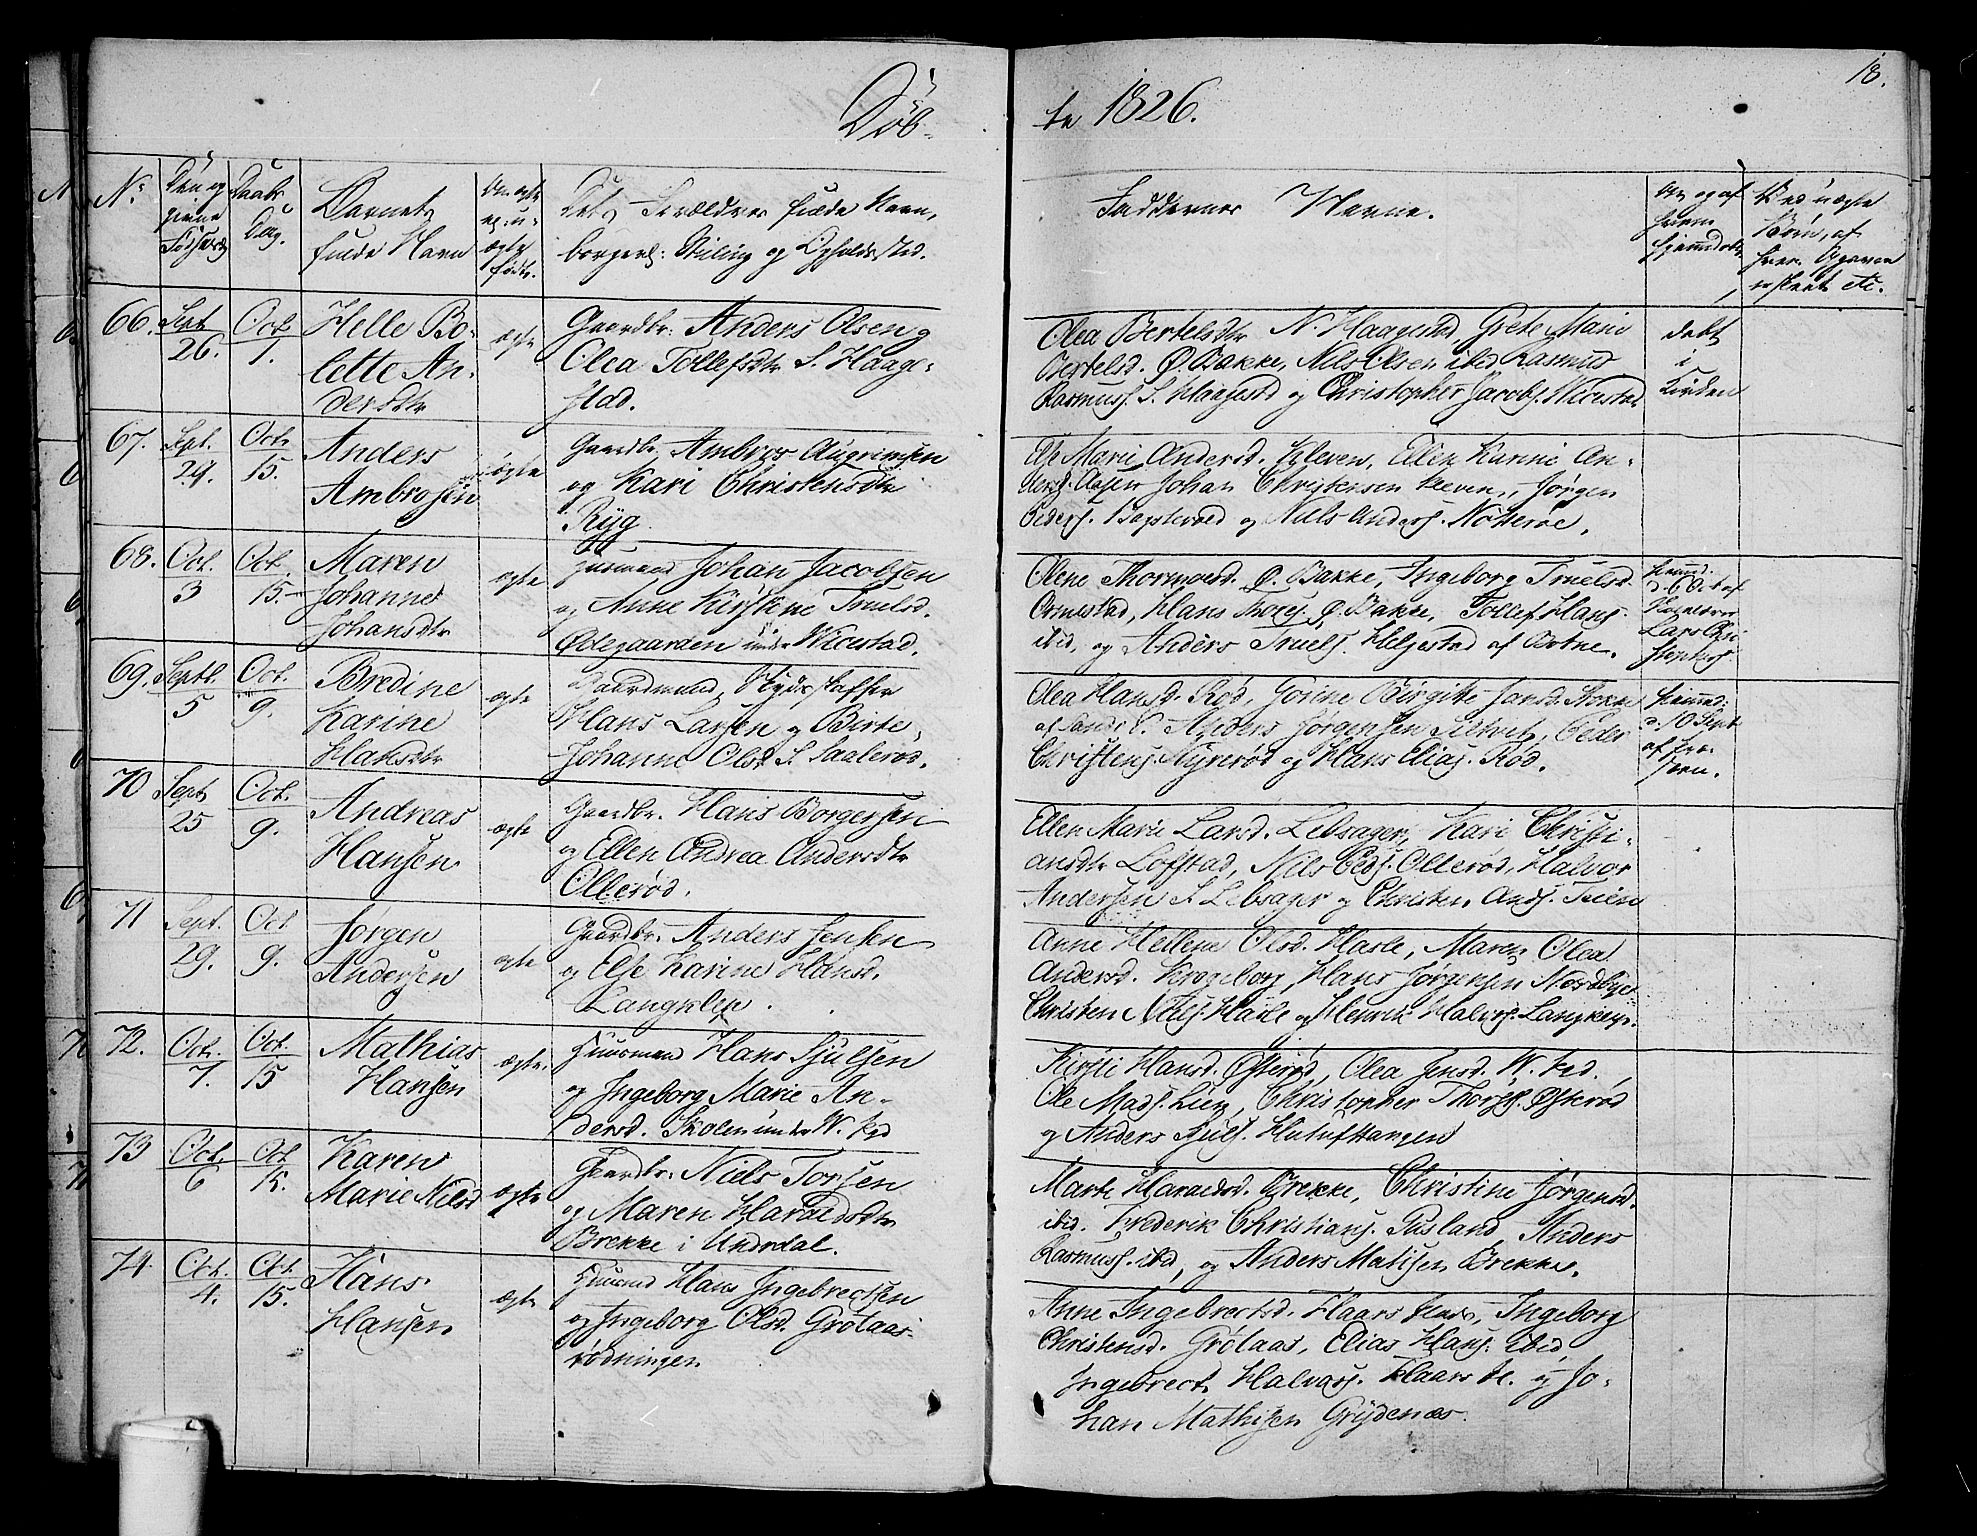 Døb-
te 1826.
18.
No
Dåabs
Dag.
Barnets
fulde Navn
ægte
født.
fulde Navn,
borgerl: Stilling og Opholdssted.
Faddernes Navne.
Om og af
hvem
hjemmedøbt
Ved uægte
Børn, af
etc.
66. Sept 26. Oct 1.
Helle Bo-
lette An-
dersdtr
ægte
Gaardbr: Anders Olsen og
Olea Tollefsdtr S. Haage-
stad.
Olea Bertelsdtr N. Haagestad, Grete Marie
Bertelsd. Ø. Bakke, Nils Olsen ibid, Rasmus
Rasmuss. S. Haagestad og Christopher Jacobs. Wicestad
døbt
i
Kirken
67. Sept. 29. Oct. 15.
Anders
Ambrosen
ægte
Gaardbr. Ambros Augrimsen
og Kari Christensdtr
Ryg
Marie Andersd. Kleven, Elen Karine An-
dersd. Aasen Johan Christensen Kleven, Jørgen
Peders. og Nils Anders. Nøtterøe.
68. Oct. 3 Oct. 15.
Maren
Johanne
Johansdtr
ægte
Huusmand Johan Jacobsen
og Anne Kirstine Truelsd.
Ødegaarden under Wicestad.
Olene Thormoesd. Ø. Bakke, Ingeborg Truelsd.
Ormestad, Hans Ø. Bakke, Tollef Hans.
ibid, og Anders Truels. Helgestad af Botne.
hiemmed:
d. 6 Oct af
Lars Chri-
stophers.
69. Septb. 5 Oct. 9.
Bredine
Karine
Hansdtr
ægte
Hans Larsen og Birte
Johanne Olsd. S. Saalerød.
Olea Hansd. Rød, Gorine Birgitte Jansd.
Anders Jørgensen Peder
Christens. Nyrerød og Hans Elias. Rød.
hiemmed:
d. 10 Sept
af
70 Sept 25 Oct. 9.
Andreas
Hansen
ægte
Gaardbr. Hans Borgersen
og Ellen Andrea Andersdtr
Ollerød.
Ellen Marie Larsd. Lebsager, Kari Christi-
ansdtr Lofstad, Nils Peds. Ollerød, Halvor
Andersen S. Lebsager og Christen Ands. Teien
71 Sept. 29. Oct 9.
Jørgen
Andersen
ægte
Gaardbr. Anders Jensen
og Else Karine Hansd.
Langklep.
Anne Hellene Olsd. Hasle, Maren Olea
Andersd. Krogeborg, Hans Jørgensen Nordbye
Christen Niels. Hasle og Henrik Halvors. Langklep.
72. Oct. 7. Oct. 15
Mathias
Hansen
ægte.
Huusmand Hans Sjulsen
og Ingeborg Marie An-
dersd. Skolen under W.
Kirsti Hansd. Østerød, Olea Jensd. W.
Ole Mads. Lien, Christopher Thors. Østerød
og Anders Sjuls.
73 Oct. 6 Oct 15.
Karen
Marie Nilsd
ægte
Gaardbr. Niels Torsen
og Maren Haraldsdtr
Brekke i Undrdal.
Marte Haraldsd. Brekke, Christine Jørgensd.
ibid. Frederik Christians. Pasland, Anders
Rasmuss. ibid, og Anders Matisen Brekke.
74. Oct. 4. Oct. 15.
Hans
Hansen
ægte
Huusmd Hans Ingebrectsen
og Ingeborg Olsd. Grøtaas-
rødningen
Anne Ingebrectsd. Ingeborg
Christensd. Grøtaas, Elias Hans. ibid,
Ingebrect Halvors. og Jo-
han Mathisen Grydenæs.